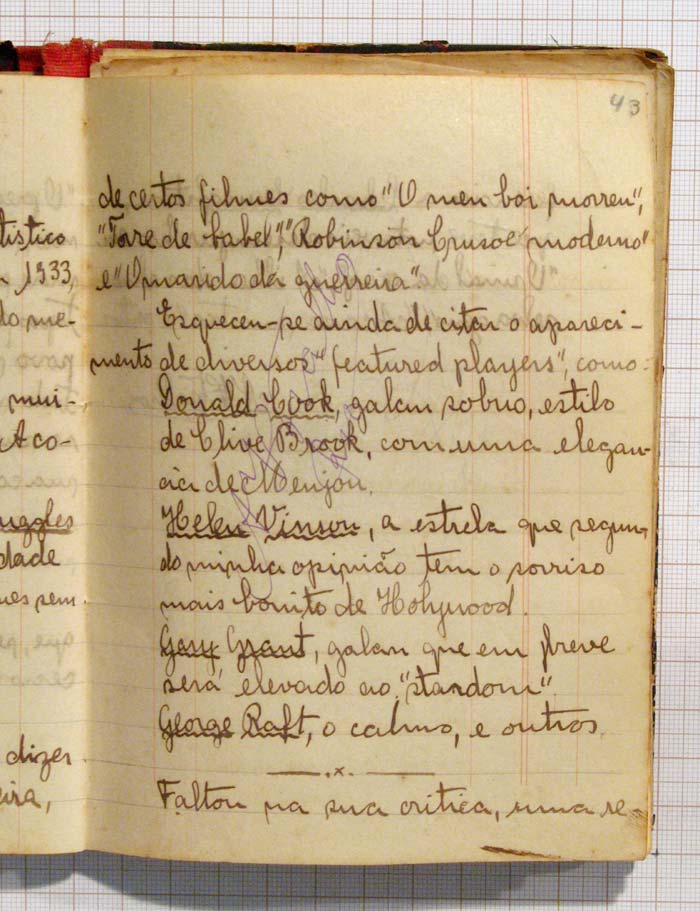 43
de certos filmes como "O meu boi morreu",
"Torre de babel", "Robinson Crusoé moderno"
e "O marido da guerreira".
Esqueceu-se ainda de citar o apareci-
mento de diversos "featured players", como:
Donald Cook, galan sobrio, estilo
de Clive Brook, com uma elegan-
cia de Menjou.
Helen Vinson, a estrela que segun-
do minha opinião tem o sorriso
mais bonito de Holywood.
Gary Grant, galan que em breve
será elevado ao "stardom".
George Raft, o calmo, e outros.
x
Faltou na sua critica, uma re-
tistico
1933,
do me-
mui-
A co-
uggles
dade
sem
dizer
eira,